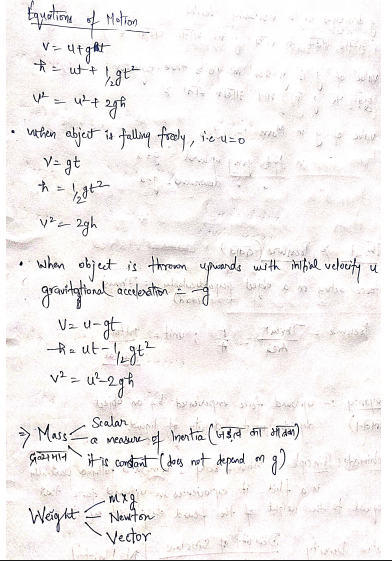 Equations of Motion
V = u + gt
h = ut + 1/2 gt²
V² = u² + 2gh
• When object is falling freely, i.e u=0
V = gt
h = 1/2 gt²
V² = 2gh
• When object is thrown upwards with initial velocity u
gravitational acceleration = -g
V = u - gt
h = ut - 1/2 gt²
V² = u² - 2gh
Scalar
⇒ Mass a measure of Inertia (जड़त्व का मात्रक)
द्रव्यमान it is constant (does not depend on g)
m×g
Weight Newton
Vector